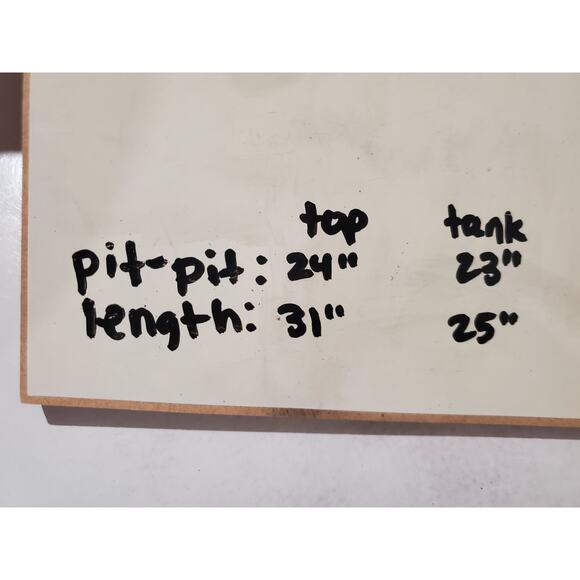 top tank
pit-pit: 24" 23"
length: 31" 25"